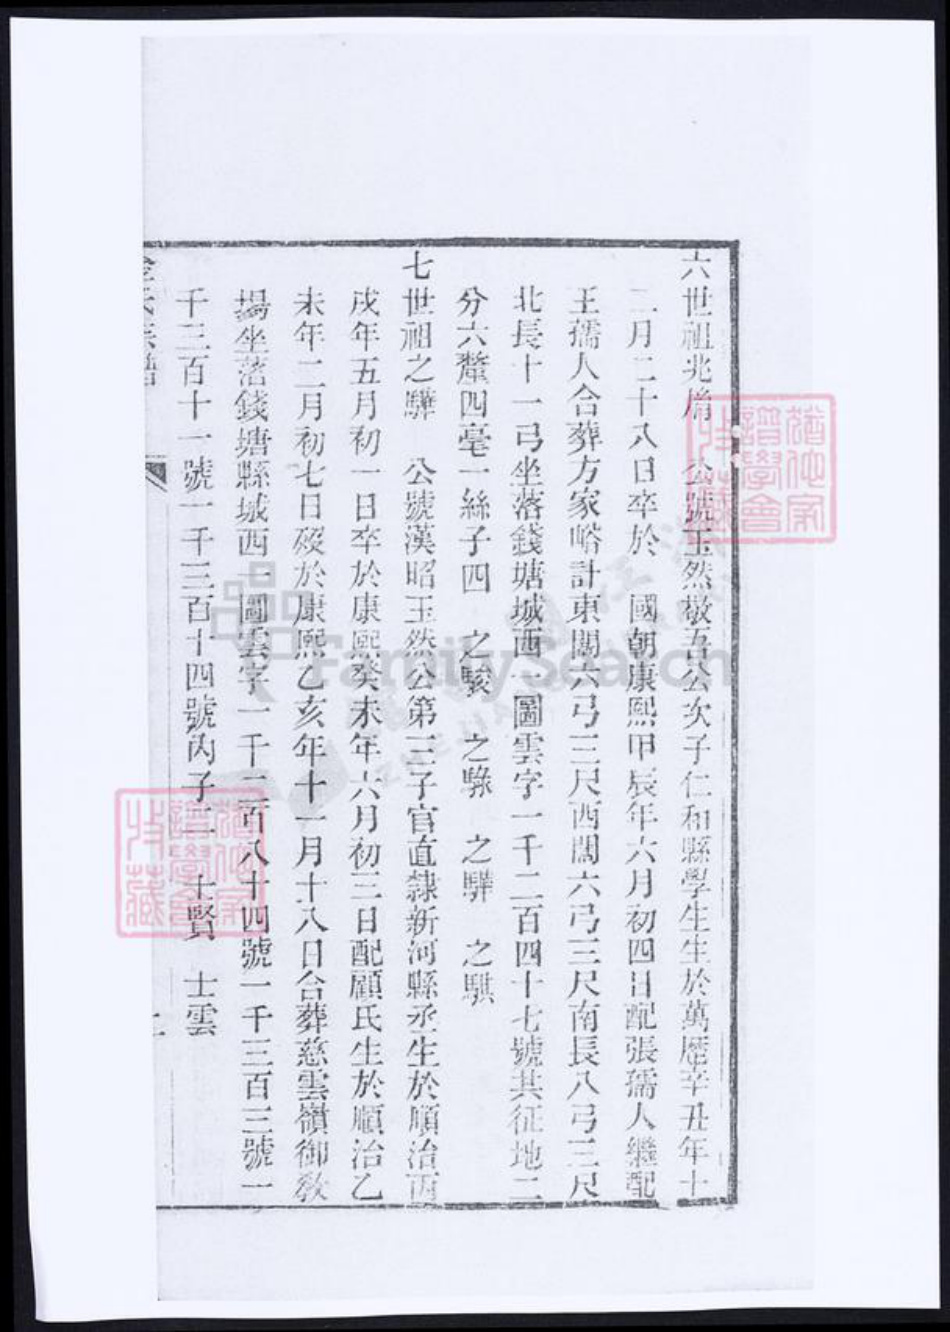 六世祖兆 公號玉然敬吾公次子仁和縣學生生於萬曆辛丑年十
二月二十八日卒於 國朝康熙甲辰年六月初四日配張孺人繼配
王孺人合葬方家峪計東闊六弓三尺西闊六弓三尺南長八弓三尺
北長十一弓坐落錢塘城西一圖雲字一千二百四十七號其征地二
分六釐四毫一絲子四 之駿 之騄 之驊 之騏
七世祖之驊 公號漢昭玉然公第三子官直隸新河縣丞生於順治丙
戌年五月初一日卒於康熙癸未年六月初三日配顧氏生於順治乙
未年二月初七日歿於康熙乙亥年十一月十八日合葬慈雲嶺御敎
場坐落錢塘縣城西 圖雲字一千二百八十四號一千三百三號一
千三百十一號一千三百十四號內子二 士賢 士雲
氏宗譜
FamilySearch